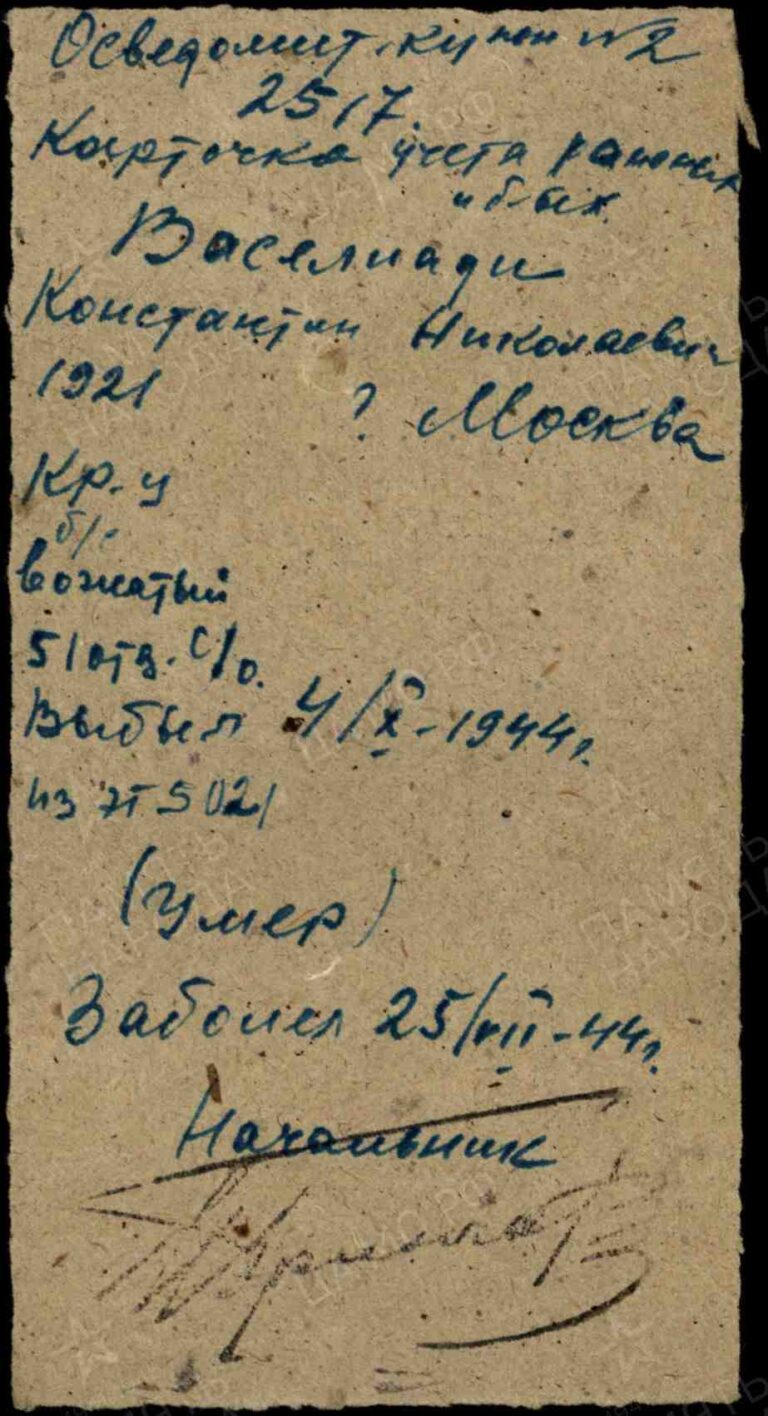 Осведомит. купон №2
2517.
Карточка учета раненых
и б-ых
Васелиади
Константин Николаевич
1921 ? Москва
Кр-ц
б/п
вожатый
51 отд. с/о.
Выбыл 4/X-1944г.
из ЭГ 5021
(Умер)
Заболел 25/VII-44г.
Начальник